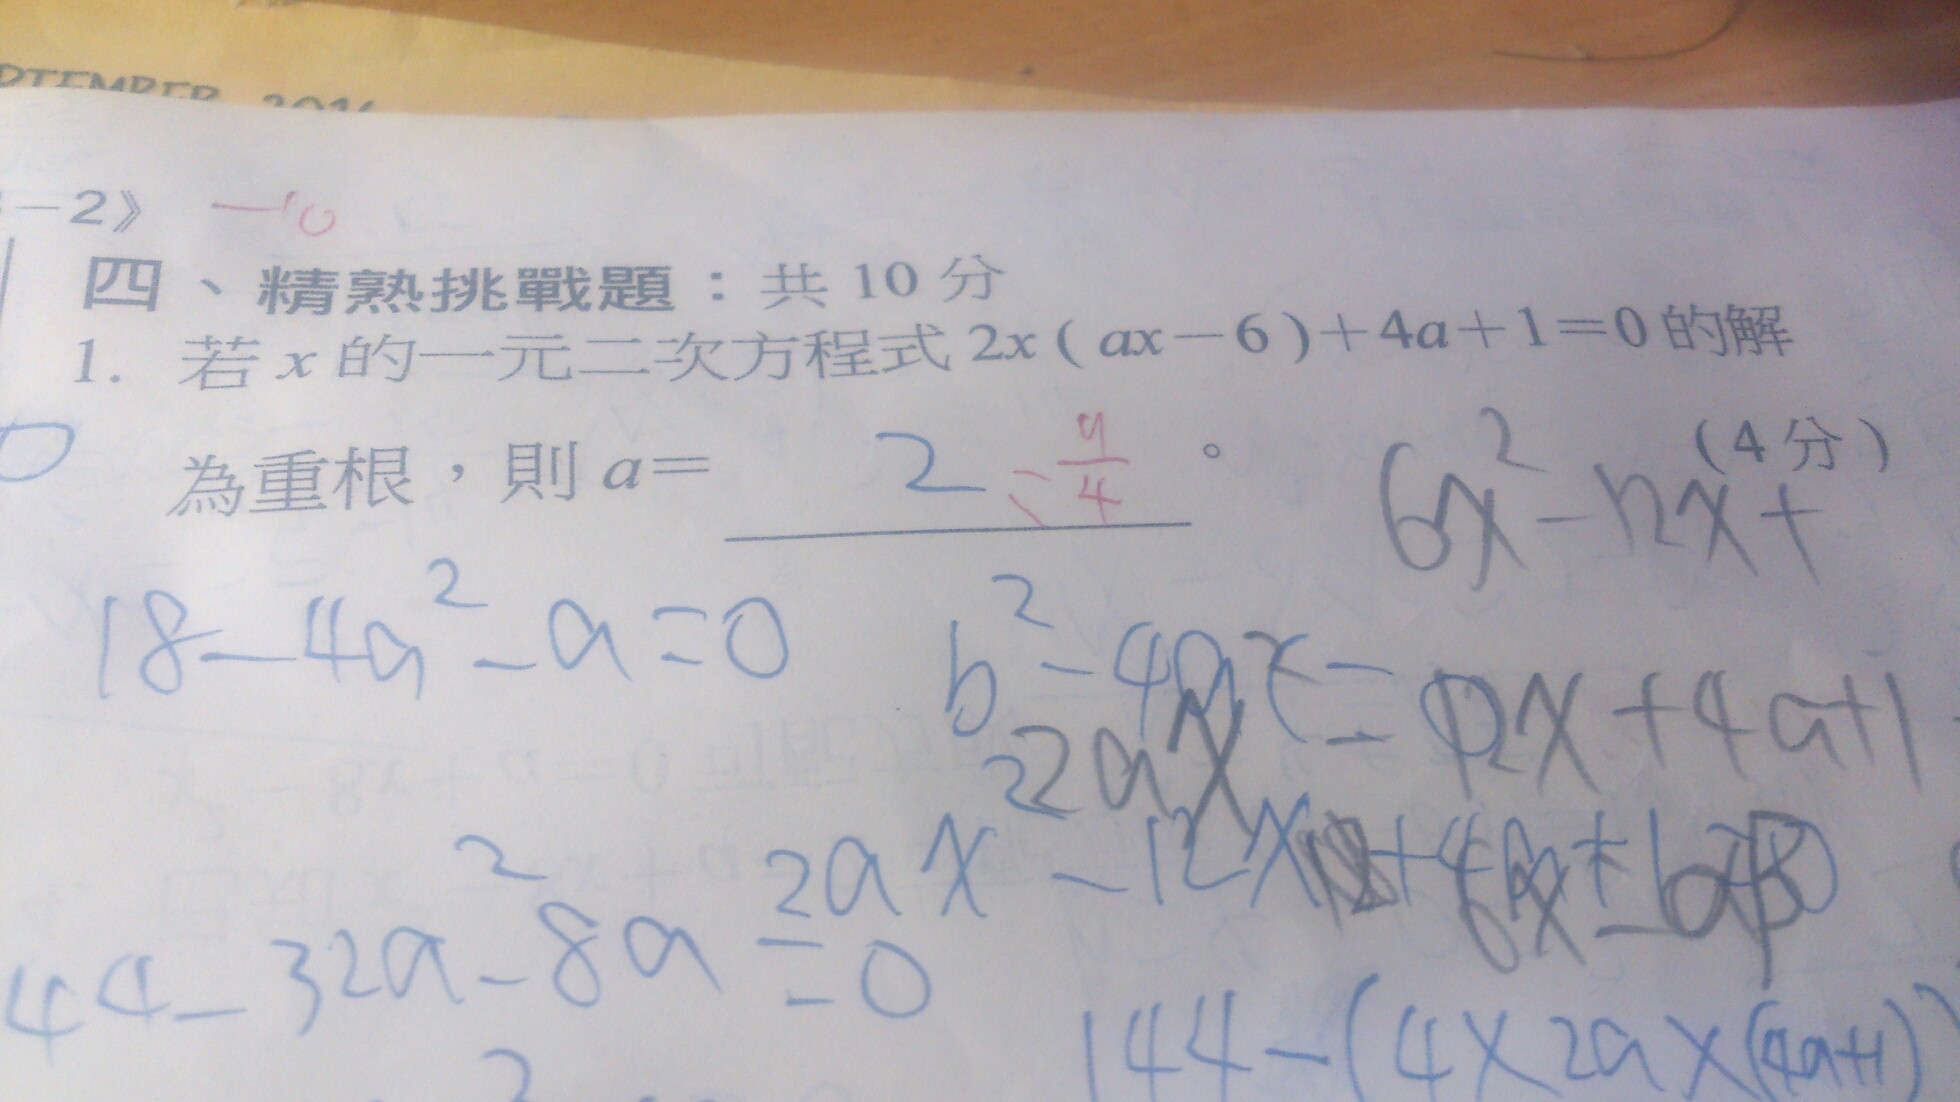 2016
-2》 -10
四、精熟挑戰題：共 10 分
1. 若 x 的一元二次方程式 2x ( ax－6 )＋4a＋1＝0 的解
為重根，則 a＝ 2 。 (4 分)
6x²-12x+
18-4a²-a=0
b²-4ac=0
12x+4a+1
2ax
2ax²-12x+4a+
44-32a²-8a=0
144-(4×2a×(4a+1)